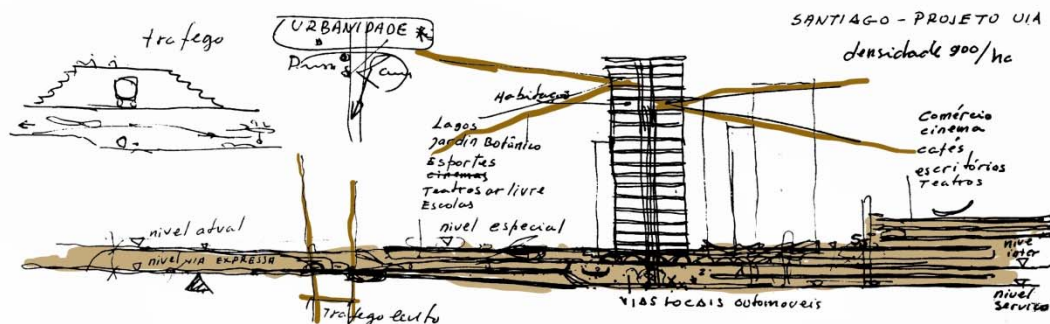 trafego
URBANIDADE *
SANTIAGO - PROJETO UIA
densidade 900/ha
Habitação
Lagos
Jardin Botânico
Esportes
cinemas
Teatros ar livre
Escolas
Comércio
cinema
cafés
escritórios
Teatros
nivel atual
nivel especial
nivel VIA EXPRESSA
nivel
inter
nivel
serviço
VIAS LOCAIS automoveis
Trafego